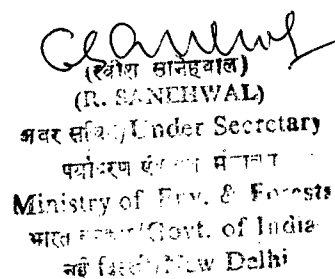 (रवीश सानेहवाल)
(R. SANEHWAL)
अवर सचिव/Under Secretary
पर्यावरण एवं
Ministry of Env. & Forests
भारत सरकार/Govt. of India
नई दिल्ली/New Delhi